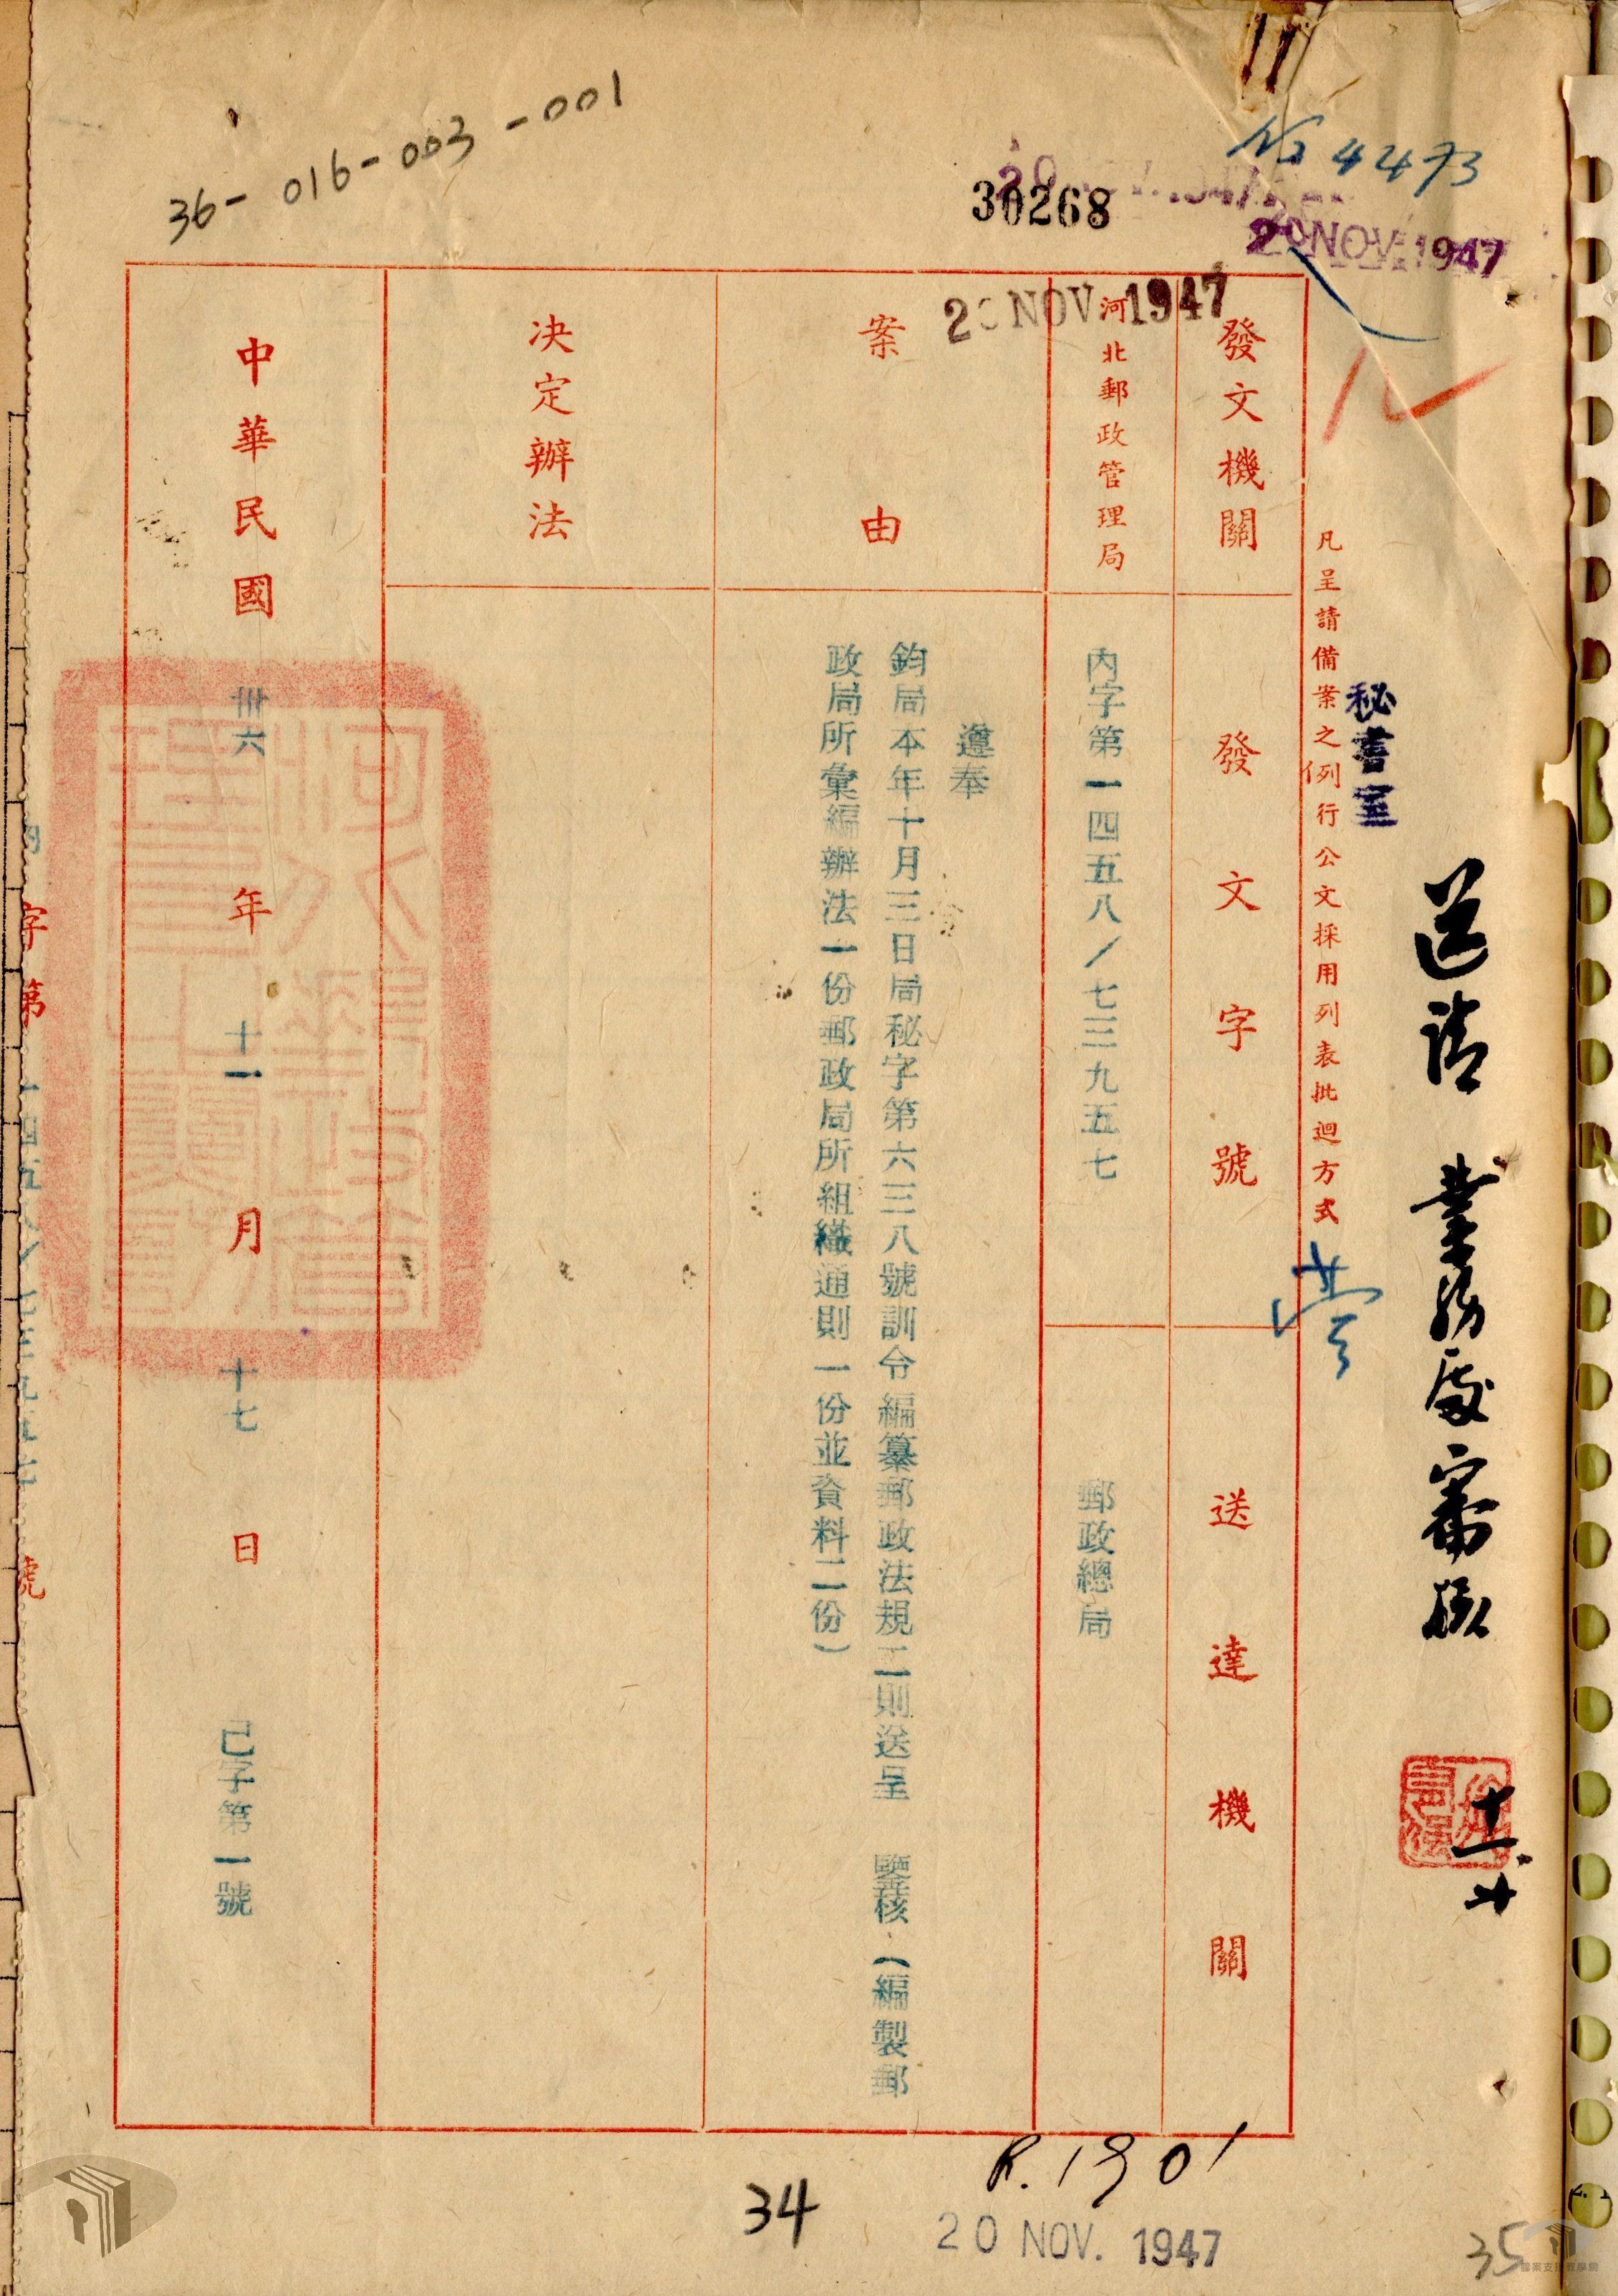 36-016-003-001
№ 4473
30268
20 NOV. 1947
20 NOV. 1947
送請 業務處審核
十一.廿
秘書室
凡呈請備案之例行公文採用列表批迴方式
發文機關
發文字號
送達機關
河北郵政管理局
內字第一四五八/七三九五七
郵政總局
案由
遵奉
鈞局本年十月三日局秘字第六三八號訓令編纂郵政法規二則送呈 鑒核（編製郵
政局所彙編辦法一份郵政局所組織通則一份並資料二份）
決定辦法
中華民國卅六年十一月十七日 己字第一號
字第一四五八/七三九五七號
R.1901
34
20 NOV. 1947
35
檔案支援教學網